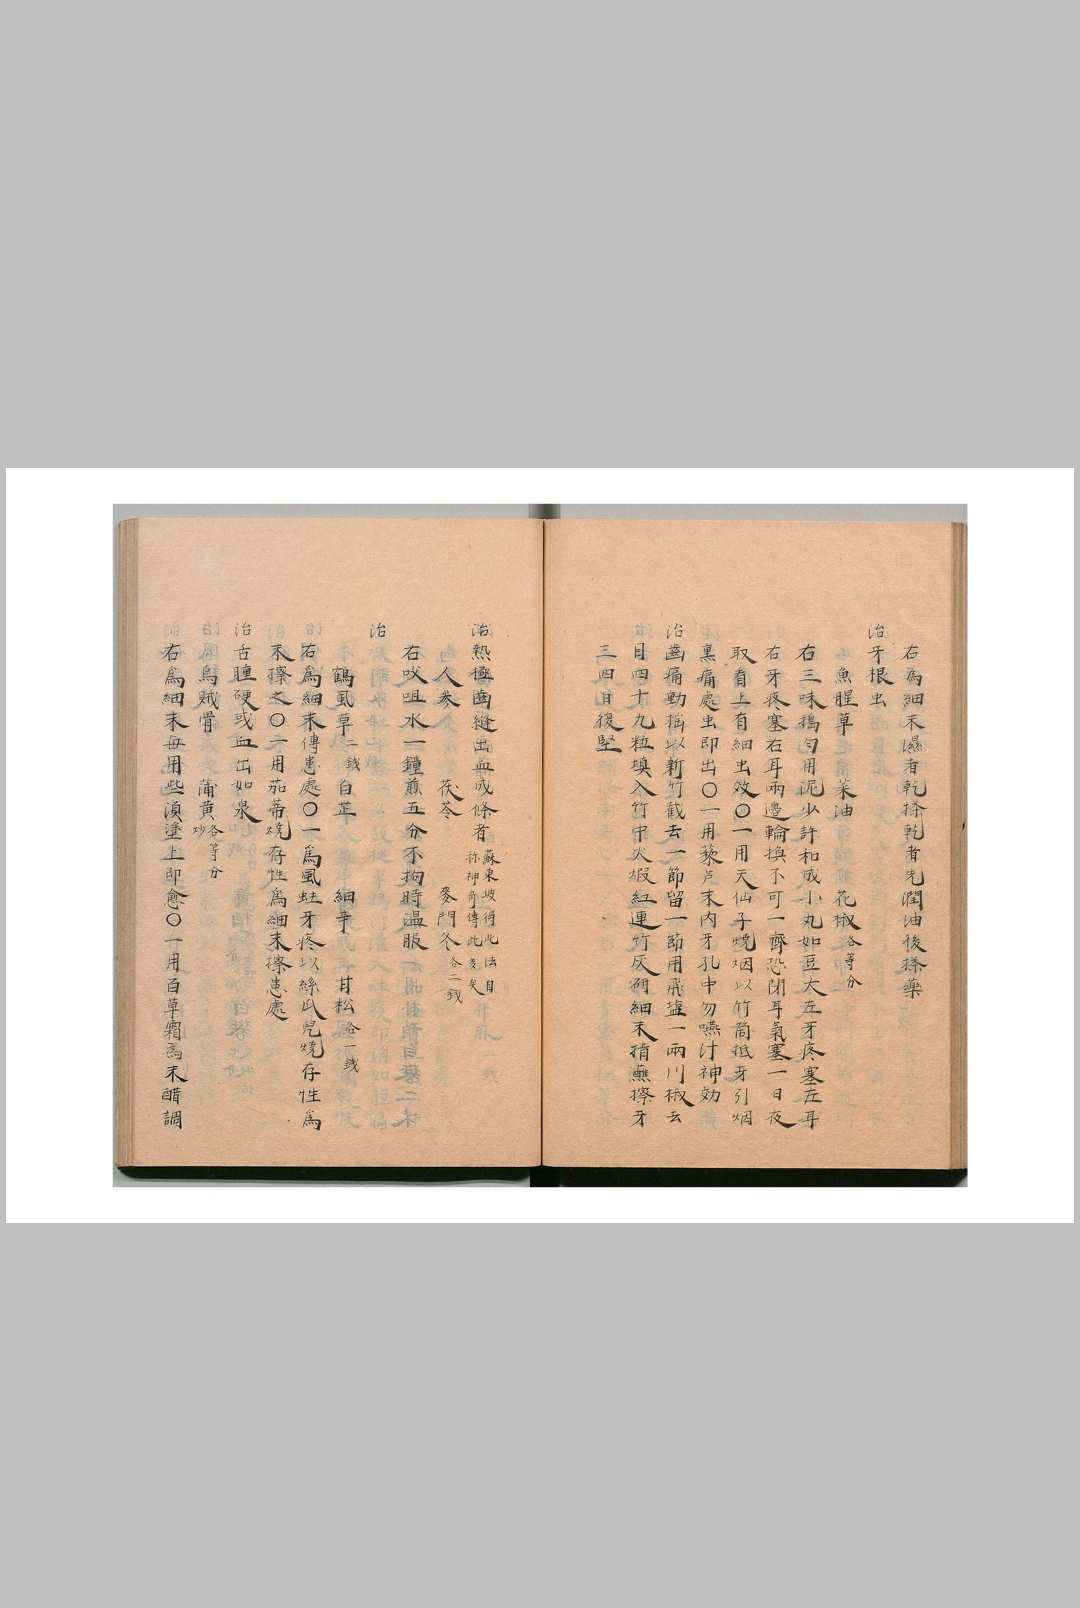 右為細末濕者乾擦乾者先潤油後擦藥
治牙根虫
魚腥草　菜油　花椒各等分
右三味搗匀用泥少許和成小丸如豆大左牙疼塞左耳
右牙疼塞右耳兩邉輪換不可一齊恐閉耳氣塞一日夜
取看上有細虫效〇一用天仙子燒烟以竹筒抵牙引烟
熏痛處虫即出〇一用藜芦末内牙孔中勿嚥汁神効
治齒痛動揺以新竹截去一節留一節用飛塩一兩川椒去
目四十九粒填入竹中火煅紅連竹灰硏細末擦牙
三四日後堅
治熱極齒縫出血成條者蘇東坡得此法自称神奇傳此矣
人參　茯苓　麥門冬各二戔
右㕮咀水一鐘煎五分不拘時温服
治
鶴虱草二戔　白芷　細辛　甘松各一戔
右為細末傅患處〇一為風蛀牙疼以絲瓜兒燒存性為
末擦之〇一用茄蒂燒存性為細末擦患處
治舌腫硬或血出如泉
烏賊骨　蒲黄各等分炒
右為細末每用些湏塗上即愈〇一用百草霜為末醋調